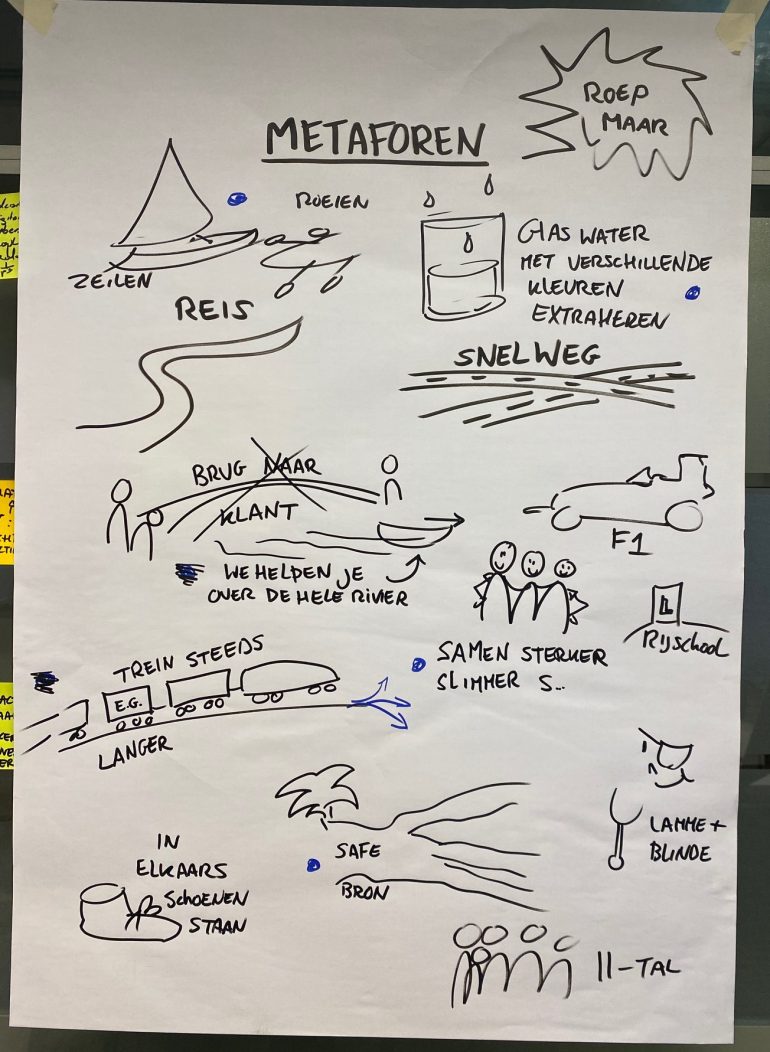 ROEP
MAAR
METAFOREN
ROEIEN
ZEILEN
GLAS WATER
MET VERSCHILLENDE
KLEUREN
EXTRAHEREN
REIS
SNELWEG
BRUG NAAR
KLANT
F1
WE HELPEN JE
OVER DE HELE RIVIER
L
RIJSCHOOL
SAMEN STERKER
SLIMMER S...
TREIN STEEDS
E.G.
LANGER
LAMME +
BLINDE
SAFE
BRON
IN
ELKAARS
SCHOENEN
STAAN
11-TAL